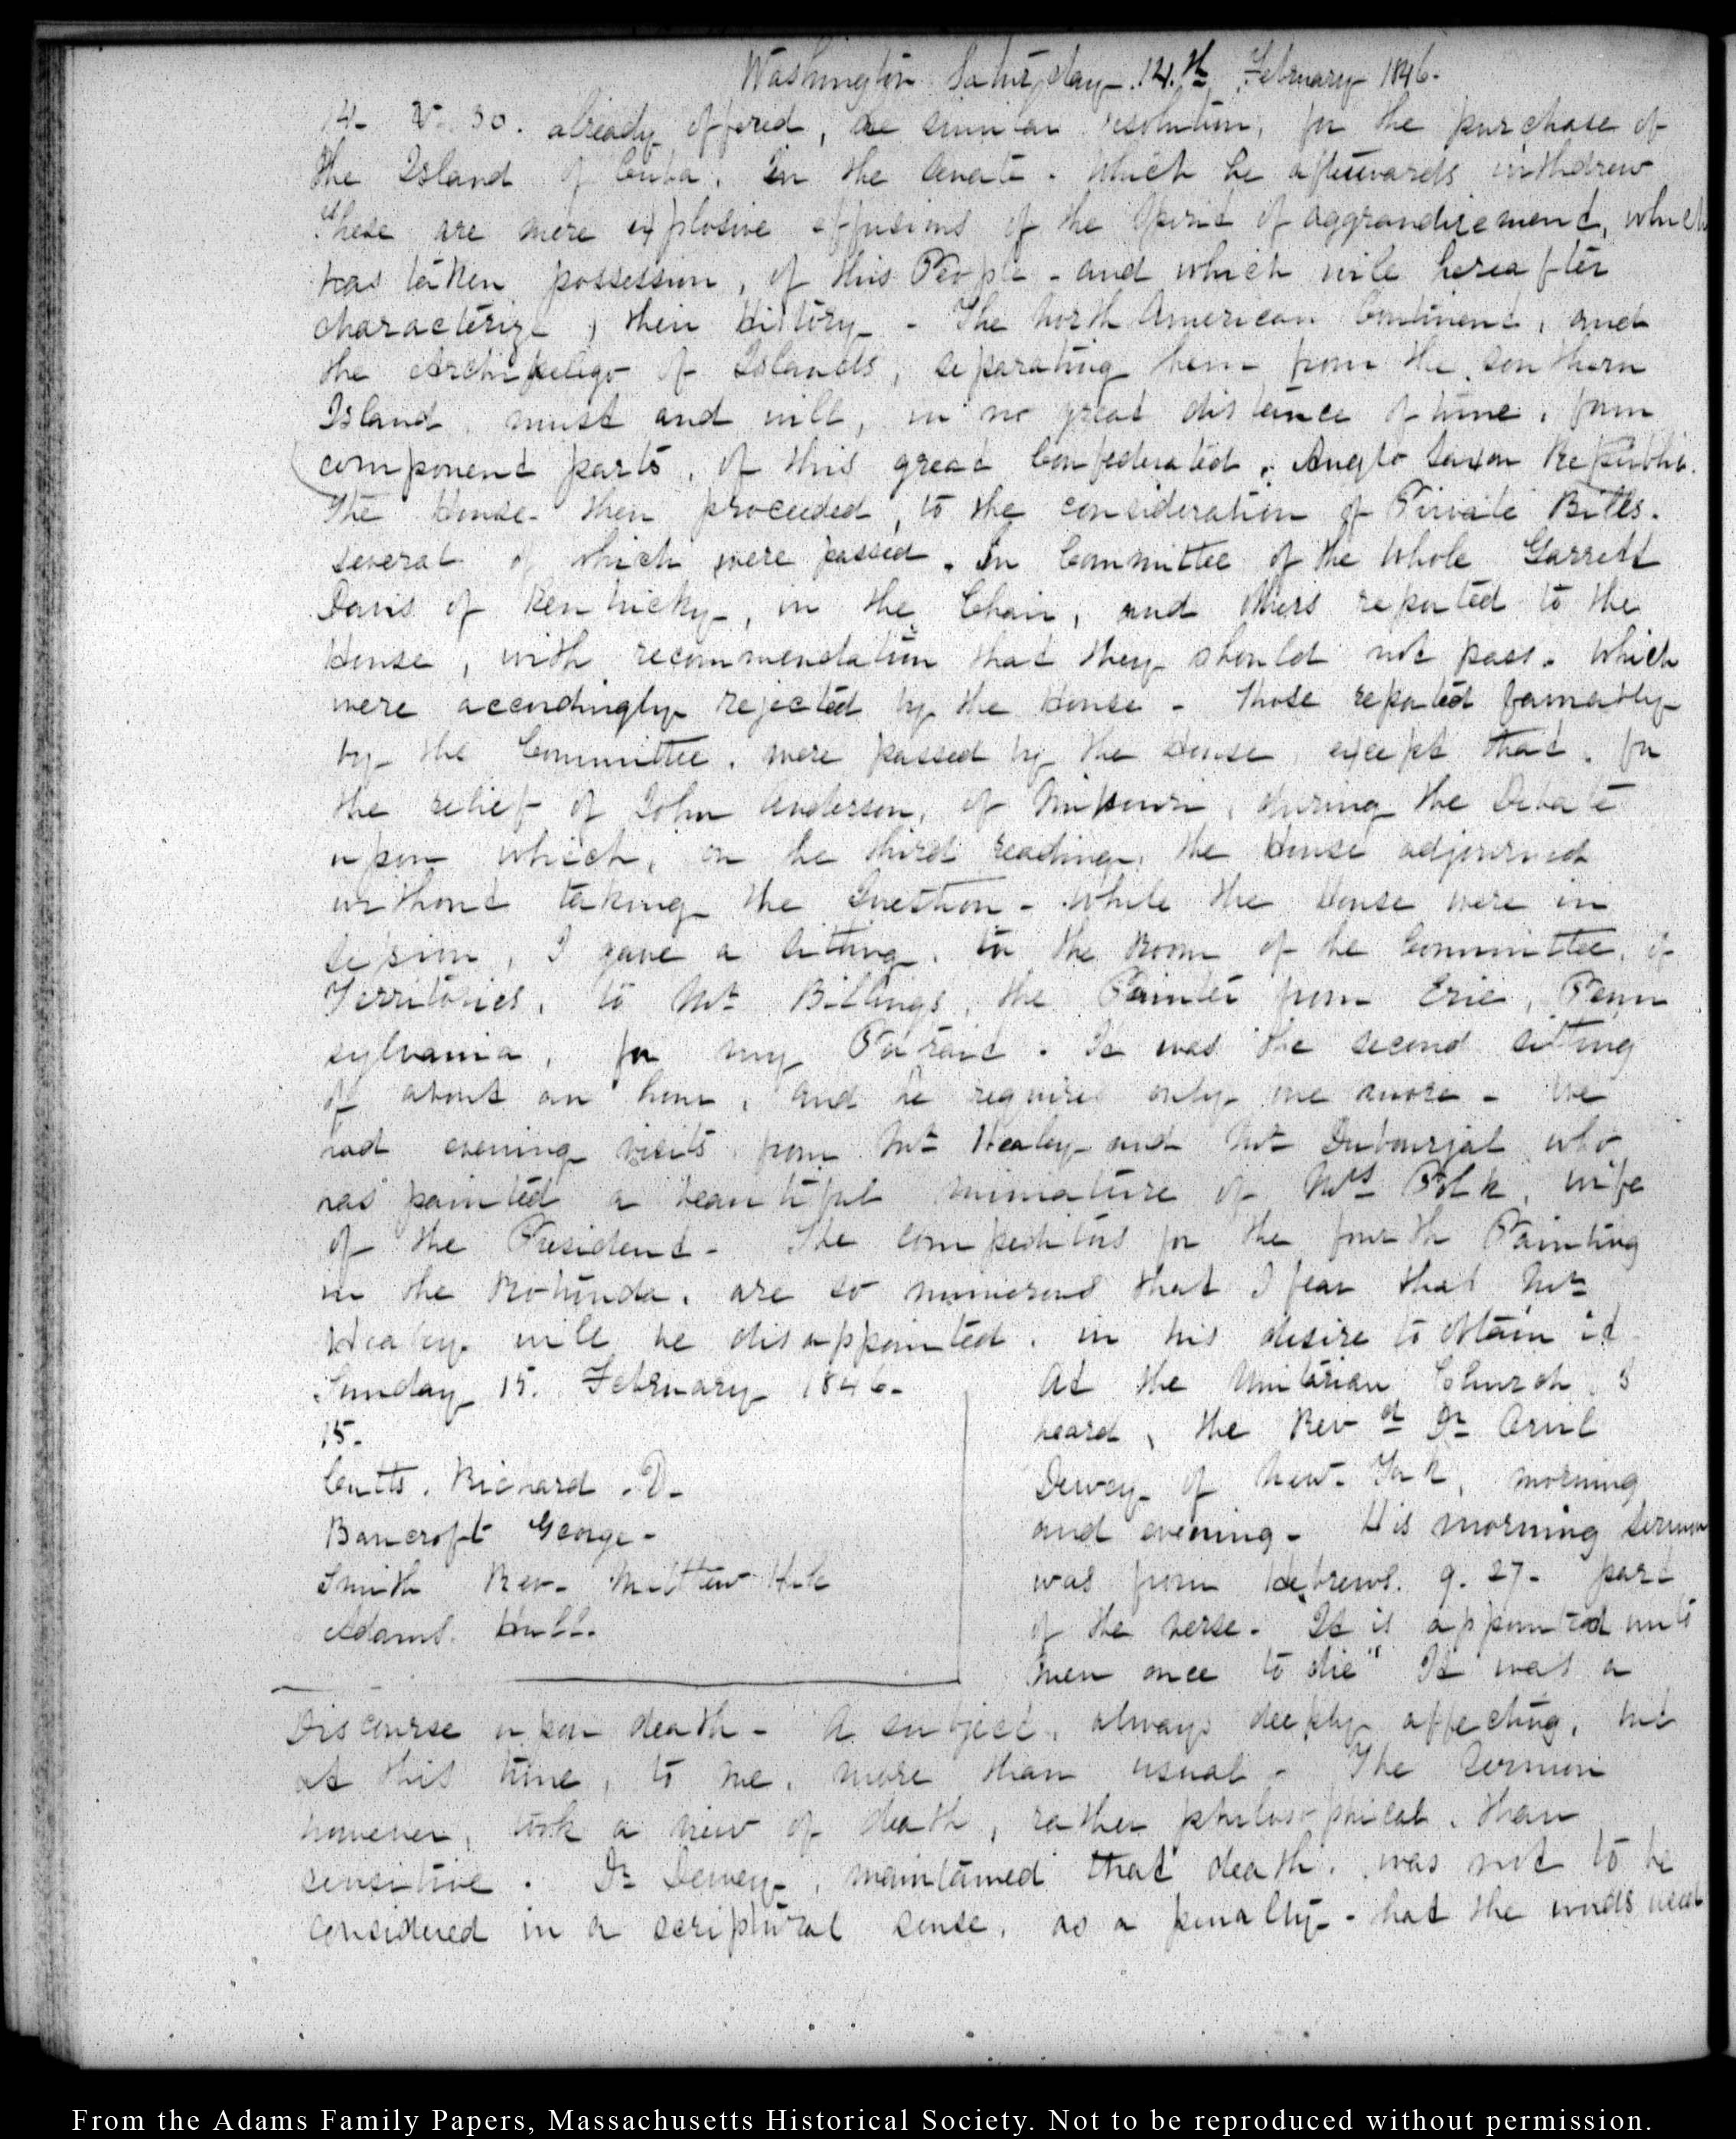 Washington Saturday 14.th February 1846.
14. V. 30. already offered, a similar resolution, for the purchase of
the Island of Cuba, in the Senate. which he afterwards withdrew
These are mere explosive effusions of the spirit of aggrandizement, which
has taken possession, of this People - and which will hereafter
characterize, their History - The North American Continent, and
the Archipeligo of Islands, separating them from the southern
Island must and will, in no great distance of time, form
component parts, of this great Confederated, Anglo Saxon Republic.
The House then proceeded, to the consideration of Private Bills.
several of which were passed. In Committee of the whole Garrett
Davis of Kentucky, in the Chair, and others reported to the
House, with recommendation that they should not pass. which
were accordingly rejected by the House - Those reported favourably
by the Committee, were passed by the House, except that, for
the relief of John Anderson, of Missouri, during the Debate
upon which, on the third reading, the House adjourned
without taking the Question - while the House were in
session, I gave a sitting, in the Room of the Committee, of
Territories, to Mr Billings, the Painter from Erie, Penn
sylvania, for my Portrait. It was the second sitting
of about an hour, and he requires only one more - We
had evening visits from Mr Healey and Mr Dubourjal who
has painted a beautiful miniature of Mrs Polk, wife
of the President - The competitors for the fourth Painting
in the Rotunda, are so numerous that I fear that Mr
Healey will be disappointed, in his desire to obtain it
Sunday 15. February 1846.
15.
Cutts. Richard. D.
Bancroft George -
Smith Rev. Matthew Hale
Adams. Hull.
At the Unitarian Church, I
heard, the Revd Dr Orvil
Dewey of New-York, morning
and evening - His morning Sermon
was from Hebrews. 9. 27. part
of the verse. It is appointed unto
men once to die" It was a
Discourse upon death - A subject, always deeply affecting, but
at this time, to me, more than usual - The Sermon
however, took a view of death, rather philosophical, than
sensitive. Dr Dewey, maintained that death, was not to be
considered in a scriptural sense, as a penalty - that the words used
From the Adams Family Papers, Massachusetts Historical Society. Not to be reproduced without permission.